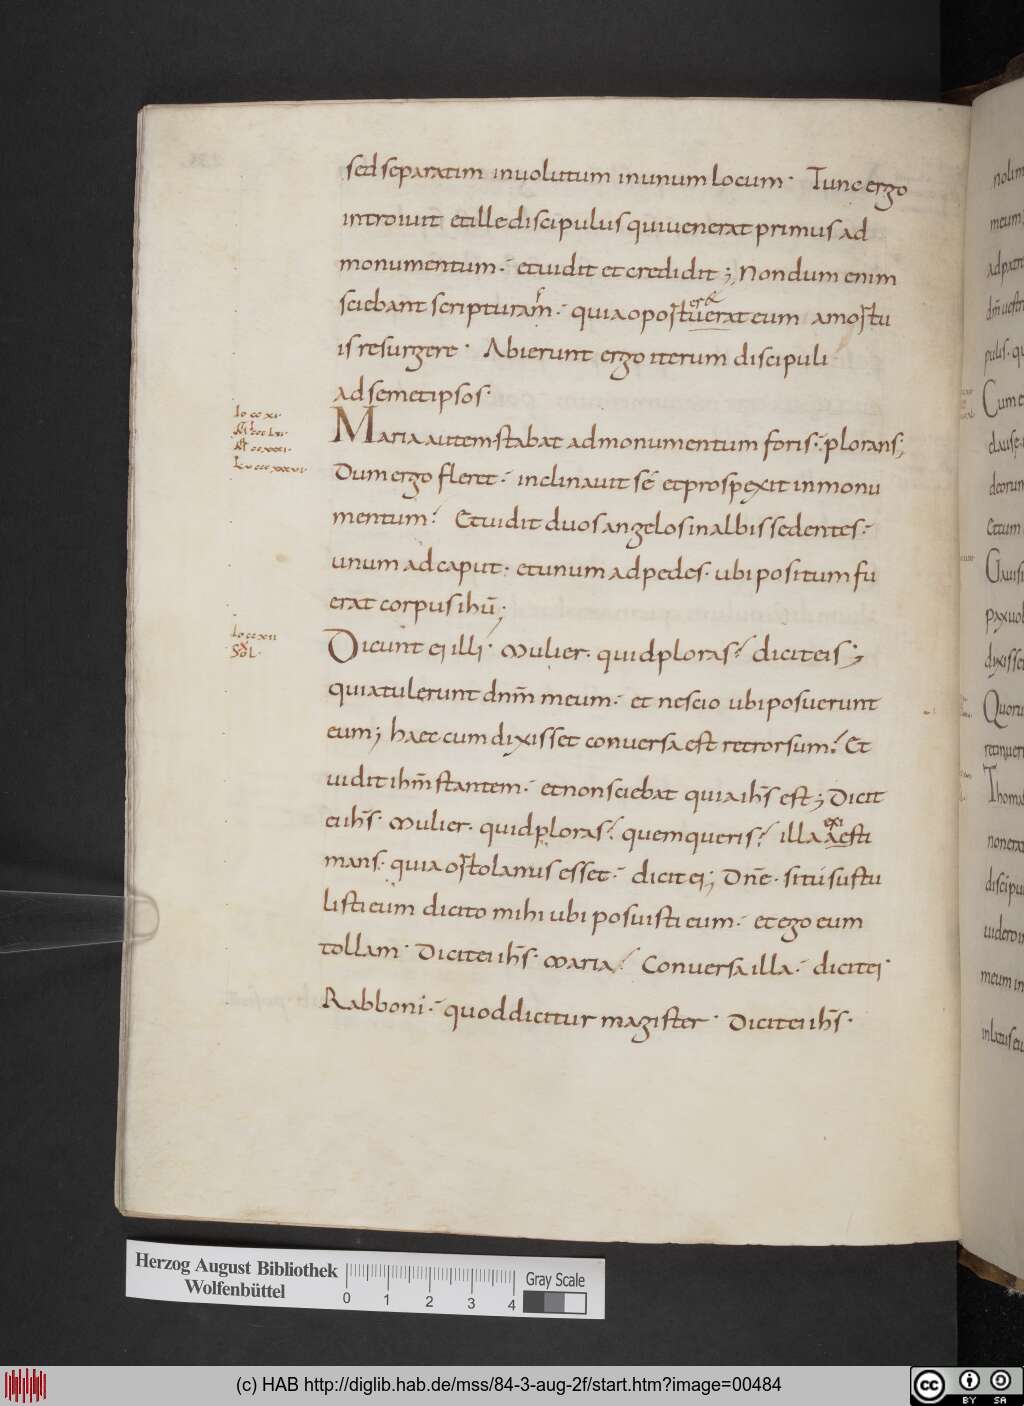 sed separatim inuolutum in unum locum · Tunc ergo
introiuit et ille discipulus qui uenerat primus ad
monumentum · et uidit et credidit ; Nondum enim
sciebant scripturam · quia oportuerat eum a mortu
is resurgere · Abierunt ergo iterum discipuli
ad semetipsos ·
Io cc xi
Maria autem stabat ad monumentum foris · plorans ;
Dum ergo fleret · inclinauit se et prospexit in monu
mentum · Et uidit duos angelos in albis sedentes ·
unum ad caput · et unum ad pedes · ubi positum fu
erat corpus ihū ;
Io cc xii
Sol ·
Dicunt ei illi · Mulier · quid ploras ? dicit eis ;
quia tulerunt dnm̄ meum · et nescio ubi posuerunt
eum ; haec cum dixisset conuersa est retrorsum · Et
uidit ihm̄ stantem · et non sciebat quia ihs̄ est ; Dicit
ei ihs̄ · Mulier · quid ploras ? quem queris ? illa exi aesti
mans · quia ortolanus esset · dicit ei ; Dnē · si tu sustu
listi eum dicito mihi ubi posuisti eum · et ego eum
tollam · Dicit ei ihs̄ · Maria · Conuersa illa · dicit ei ·
Rabboni · quod dicitur magister · Dicit ei ihs̄ ·
Herzog August Bibliothek
Wolfenbüttel
0 1 2 3 4
Gray Scale
(c) HAB http://diglib.hab.de/mss/84-3-aug-2f/start.htm?image=00484
cc BY SA